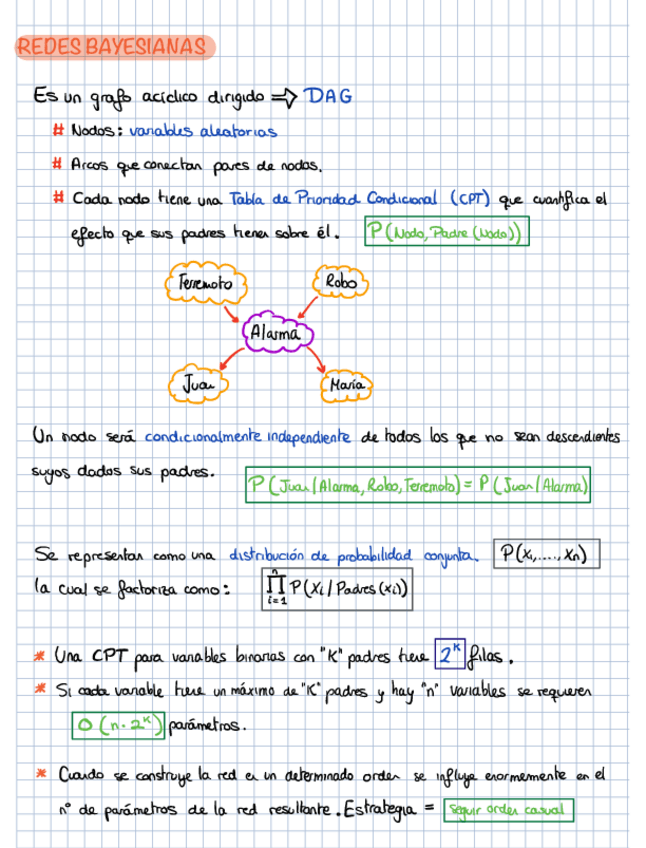 REDES BAYESIANAS
Es un grafo acíclico dirigido ⇒ DAG
# Nodos: variables aleatorias
# Arcos que conectan pares de nodos.
# Cada nodo tiene una Tabla de Prioridad Condicional (CPT) que cuantifica el
efecto que sus padres tienen sobre él. P(Nodo, Padre (Nodo))
Terremoto Robo
Alarma
Juan María
Un nodo será condicionalmente independiente de todos los que no sean descendientes
suyos dados sus padres. P(Juan/Alarma, Robo, Terremoto) = P(Juan/Alarma)
Se representan como una distribución de probabilidad conjunta. P(x₁,....,xₙ)
la cual se factoriza como: ∏ⁿᵢ₌₁ P(Xi/Padres(xi))
* Una CPT para variables binarias con "K" padres tiene 2ᴷ filas.
* Si cada variable tiene un máximo de "K" padres y hay "n" variables se requieren
O(n·2ᴷ) parámetros.
* Cuando se construye la red en un determinado orden se influye enormemente en el
nº de parámetros de la red resultante. Estrategia = seguir orden casual